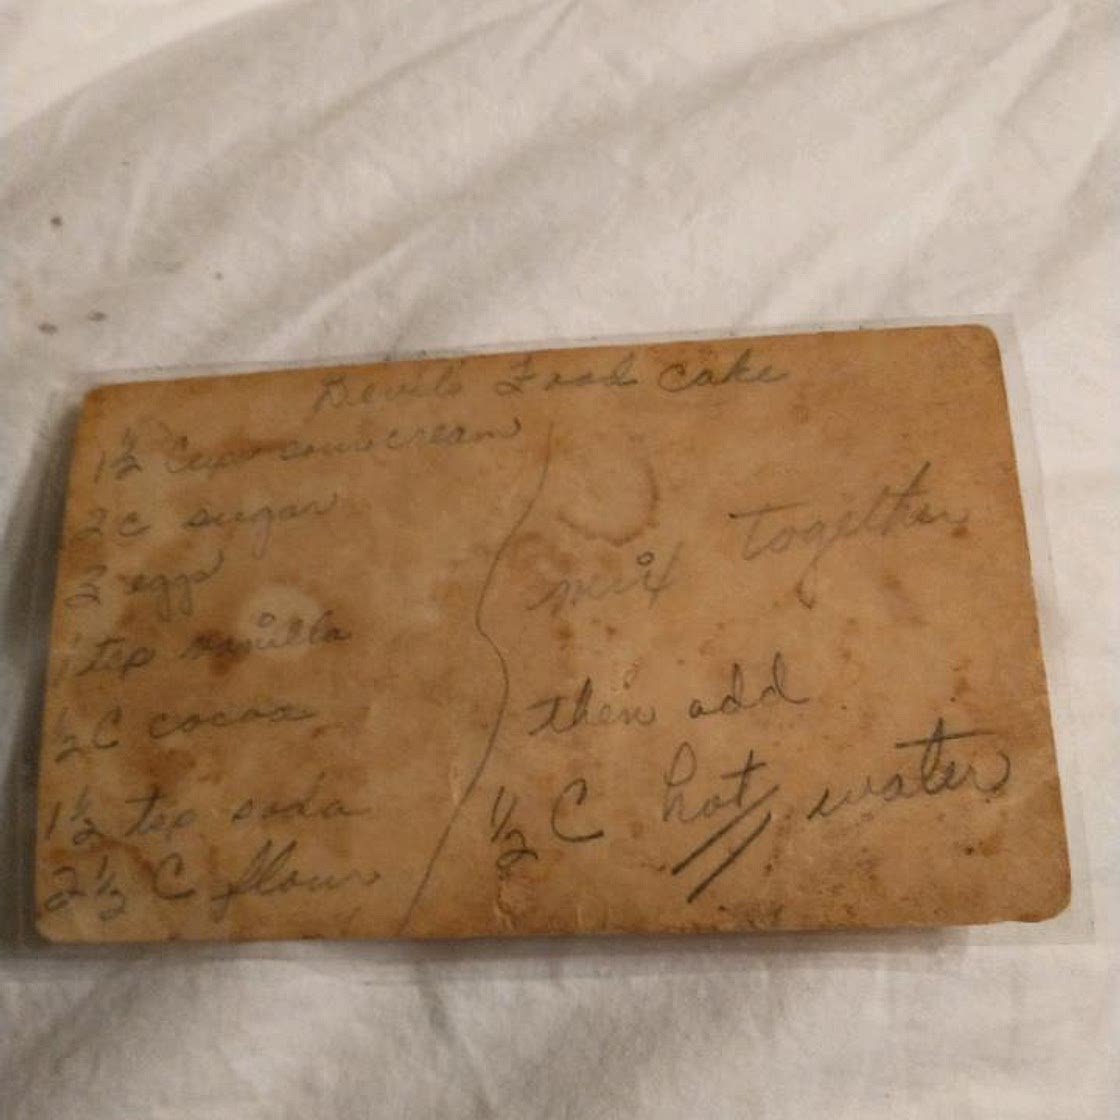 Devils Food Cake
1 1/2 Cups sour cream
2 c sugar
eggs
1 tsp vanilla
1/2 C cocoa
1 1/2 tsp soda
2 1/2 C flour
mix together
then add
1/2 C hot water